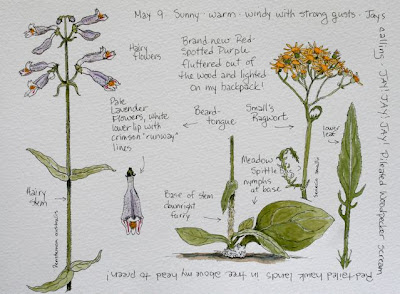 May 9 · Sunny · warm · windy with strong gusts · Jays
calling JAY JAY JAY! Pileated Woodpecker scream
Red-tailed hawk lands in tree above my head to preen!
Hairy
flowers
Brand new Red-
Spotted Purple
fluttered out of
the wood and lighted
on my backpack!
Pale
Lavender
Flowers, white
lower lip with
crimson "runway"
lines
Beard-
tongue
Small's
Ragwort
lower leaf
Meadow
Spittle
nymphs
at base
Hairy
stem
Base of stem
downright
furry
Penstemon australis
Senecio smallii